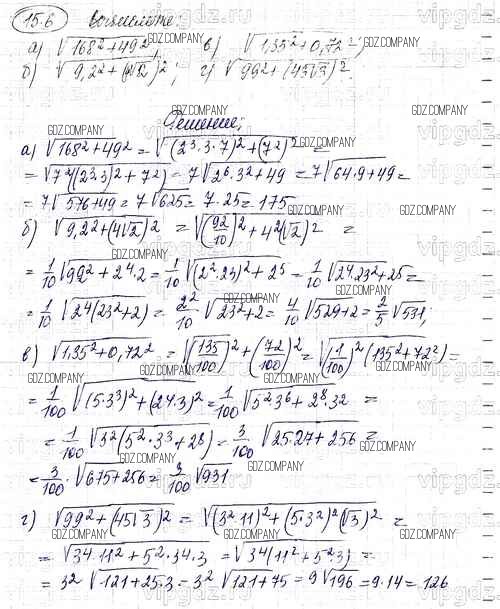 15.6 Вычислите:
а) √168²+49², в) √1,35²+0,72²;
б) √9,2²+(4√2)²; г) √99²+(45√3)².
Решение:
а) √168²+49² = √(2³·3·7)²+(7²)² =
= √7²((2³·3)²+7²) = 7√2⁶·3²+49 = 7√64·9+49 =
= 7√576+49 = 7√625 = 7·25 = 175
б) √9,2²+(4√2)² = √(92/10)²+4²(√2)² =
= 1/10 √92²+2⁴·2 = 1/10 √(2²·23)²+2⁵ = 1/10 √2⁴·23²+25 =
= 1/10 √2⁴(23²+2) = 2²/10 √23²+2 = 4/10 √529+2 = 2/5 √531;
в) √1,35²+0,72² = √(135/100)²+(72/100)² = √(1/100)²(135²+72²) =
= 1/100 √(5·3³)²+(2⁴·3)² = 1/100 √5²·3⁶+2⁸·3² =
= 1/100 √3²(5²·3³+2⁸) = 3/100 √25·27+256 =
= 3/100 · √675+256 = 3/100 √931
г) √99²+(45√3)² = √(3²·11)²+(5·3²)²(√3)² =
= √3⁴·11²+5²·3⁴·3 = √3⁴(11²+5²·3) =
= 3² √121+25·3 = 3² √121+75 = 9√196 = 9·14 = 126